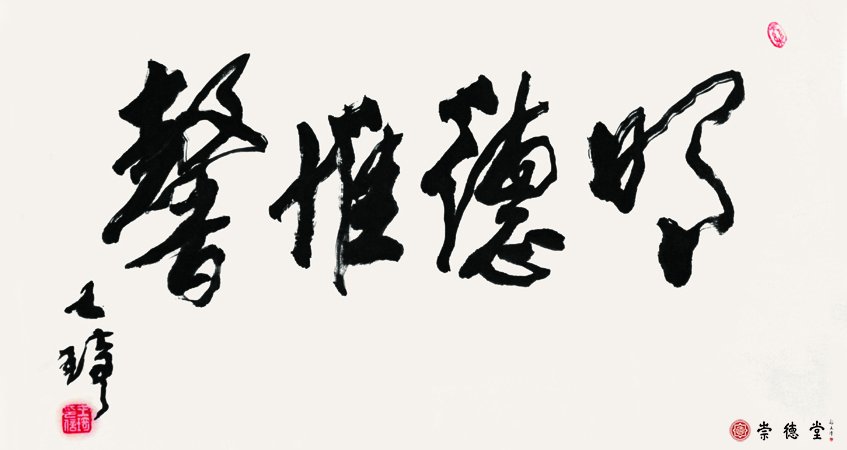 明德惟馨
王琦
崇德堂